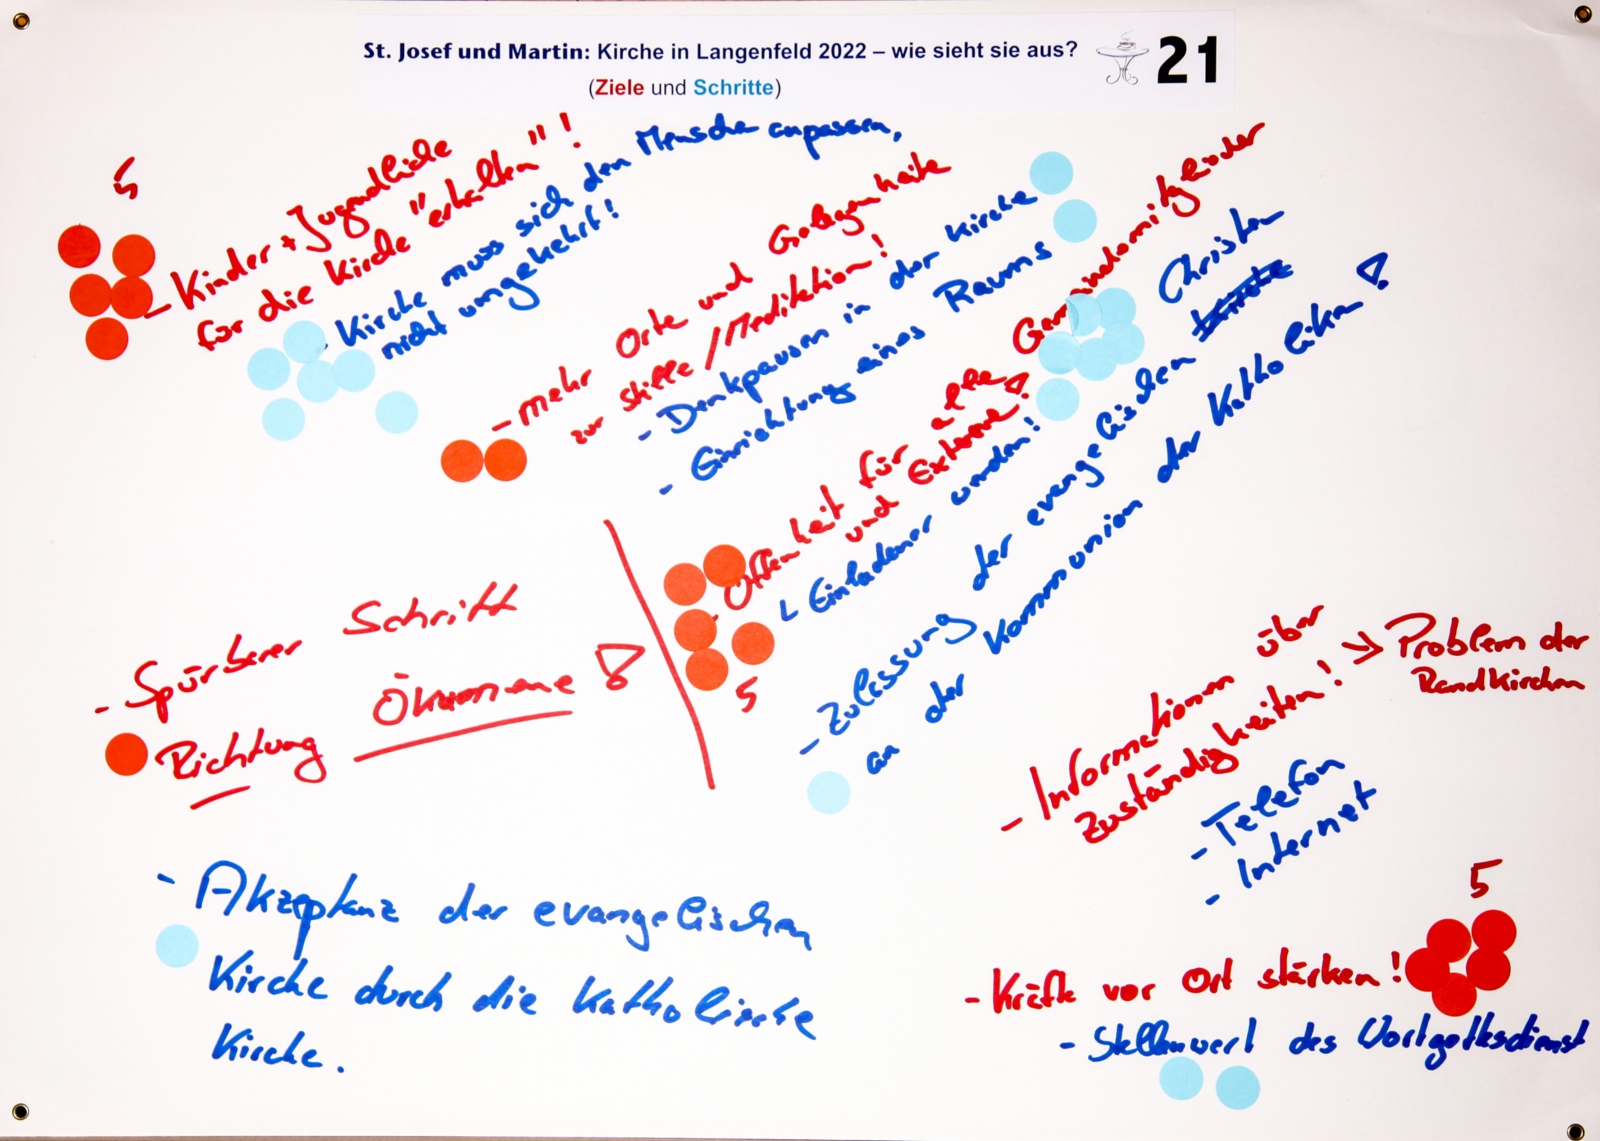 St. Josef und Martin: Kirche in Langenfeld 2022 – wie sieht sie aus?
(Ziele und Schritte)
21
5
- Kinder + Jugendliche
für die Kirche "erhalten"!
- Kirche muss sich den Menschen anpassen,
nicht umgekehrt!
- mehr Orte und Gelegenheite
zur Stille / Meditation!
- Denkpausen in der Kirche
- Einrichtung eines Raums
- Offenheit für alle Gemeindemitglieder
und Externe!
↳ Einladener werden!
5
- Zulassung der evangelischen Christen
an der Kommunion der Katholiken!
- Spürbarer Schritt
Richtung Ökumene!
- Akzeptanz der evangelischen
Kirche durch die katholische
Kirche.
- Informationen über
Zuständigkeiten! → Problem der
Randkirchen
- Telefon
- Internet
5
- Kräfte vor Ort stärken!
- Stellenwert des Wortgottesdienst